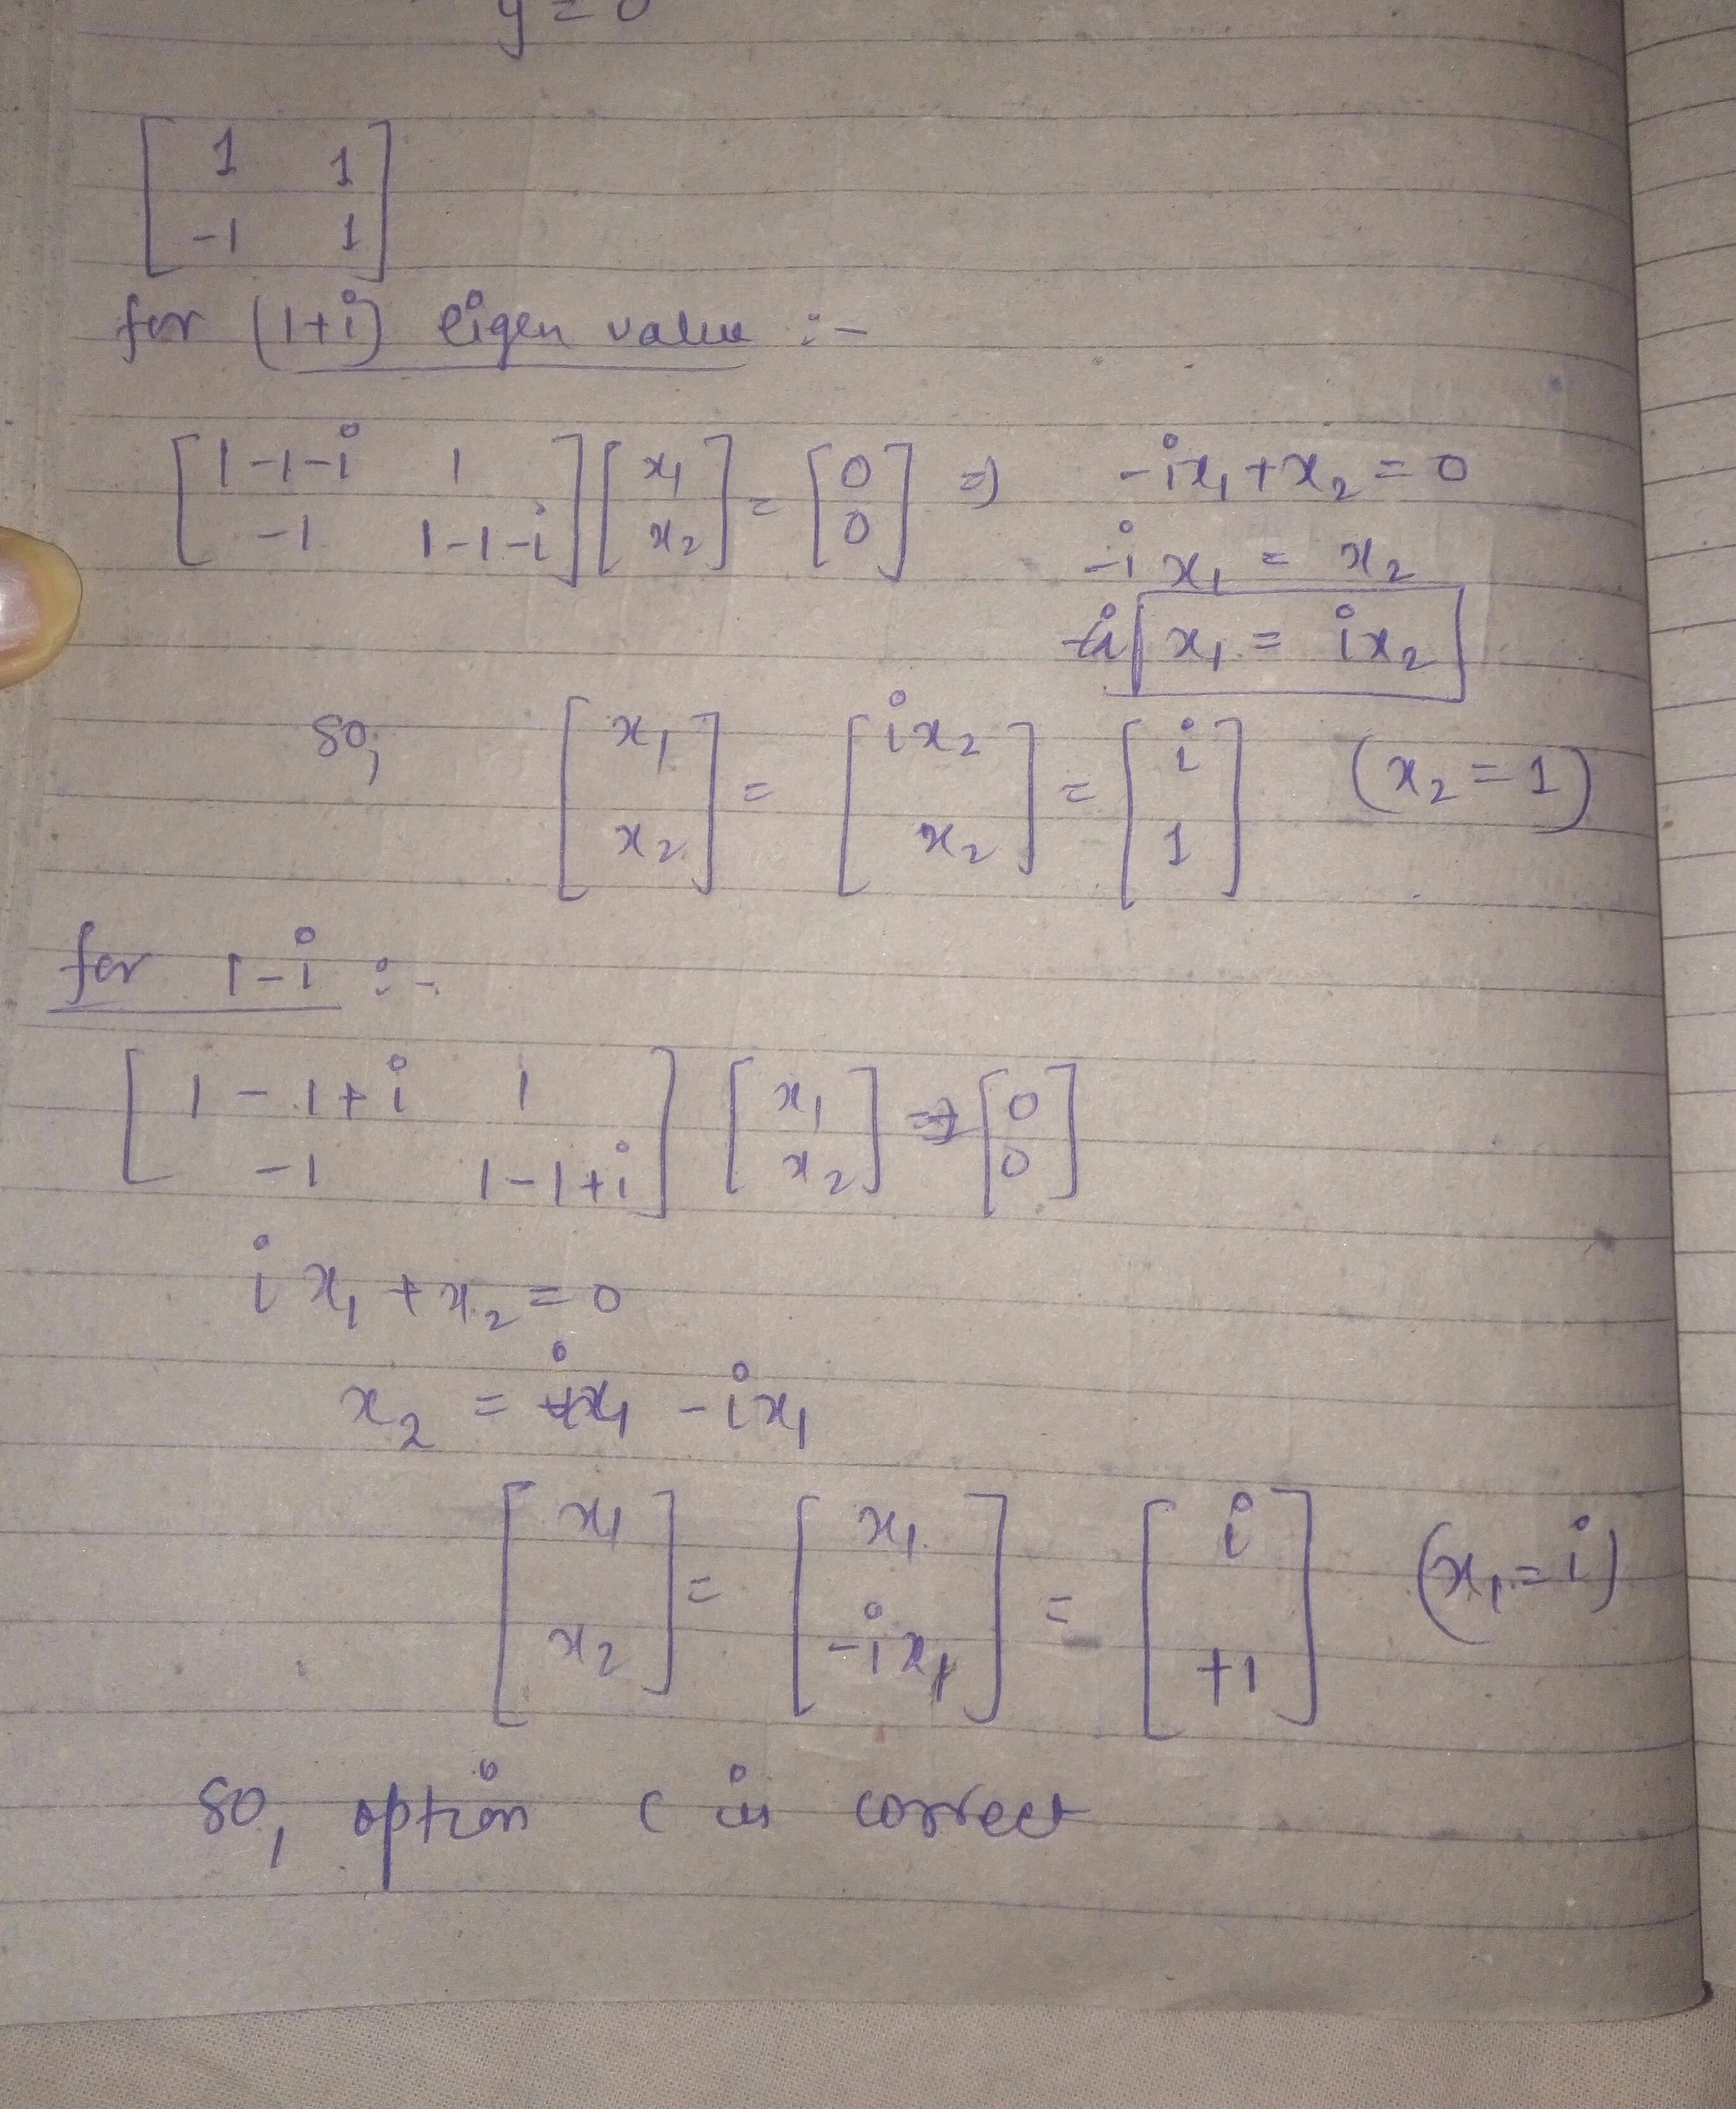 y = 0
[ 1 1
-1 1 ]
for (1+i) eigen value :-
[ 1-1-i 1
-1 1-1-i ] [ x1
x2 ] = [ 0
0 ] => -ix1 + x2 = 0
-i x1 = x2
x1 = ix2
so, [ x1
x2 ] = [ ix2
x2 ] = [ i
1 ] (x2 = 1)
for 1-i :-
[ 1-1+i 1
-1 1-1+i ] [ x1
x2 ] => [ 0
0 ]
i x1 + x2 = 0
x2 = -ix1
[ x1
x2 ] = [ x1
-ix1 ] = [ i
+1 ] (x1 = i)
so, option c is correct